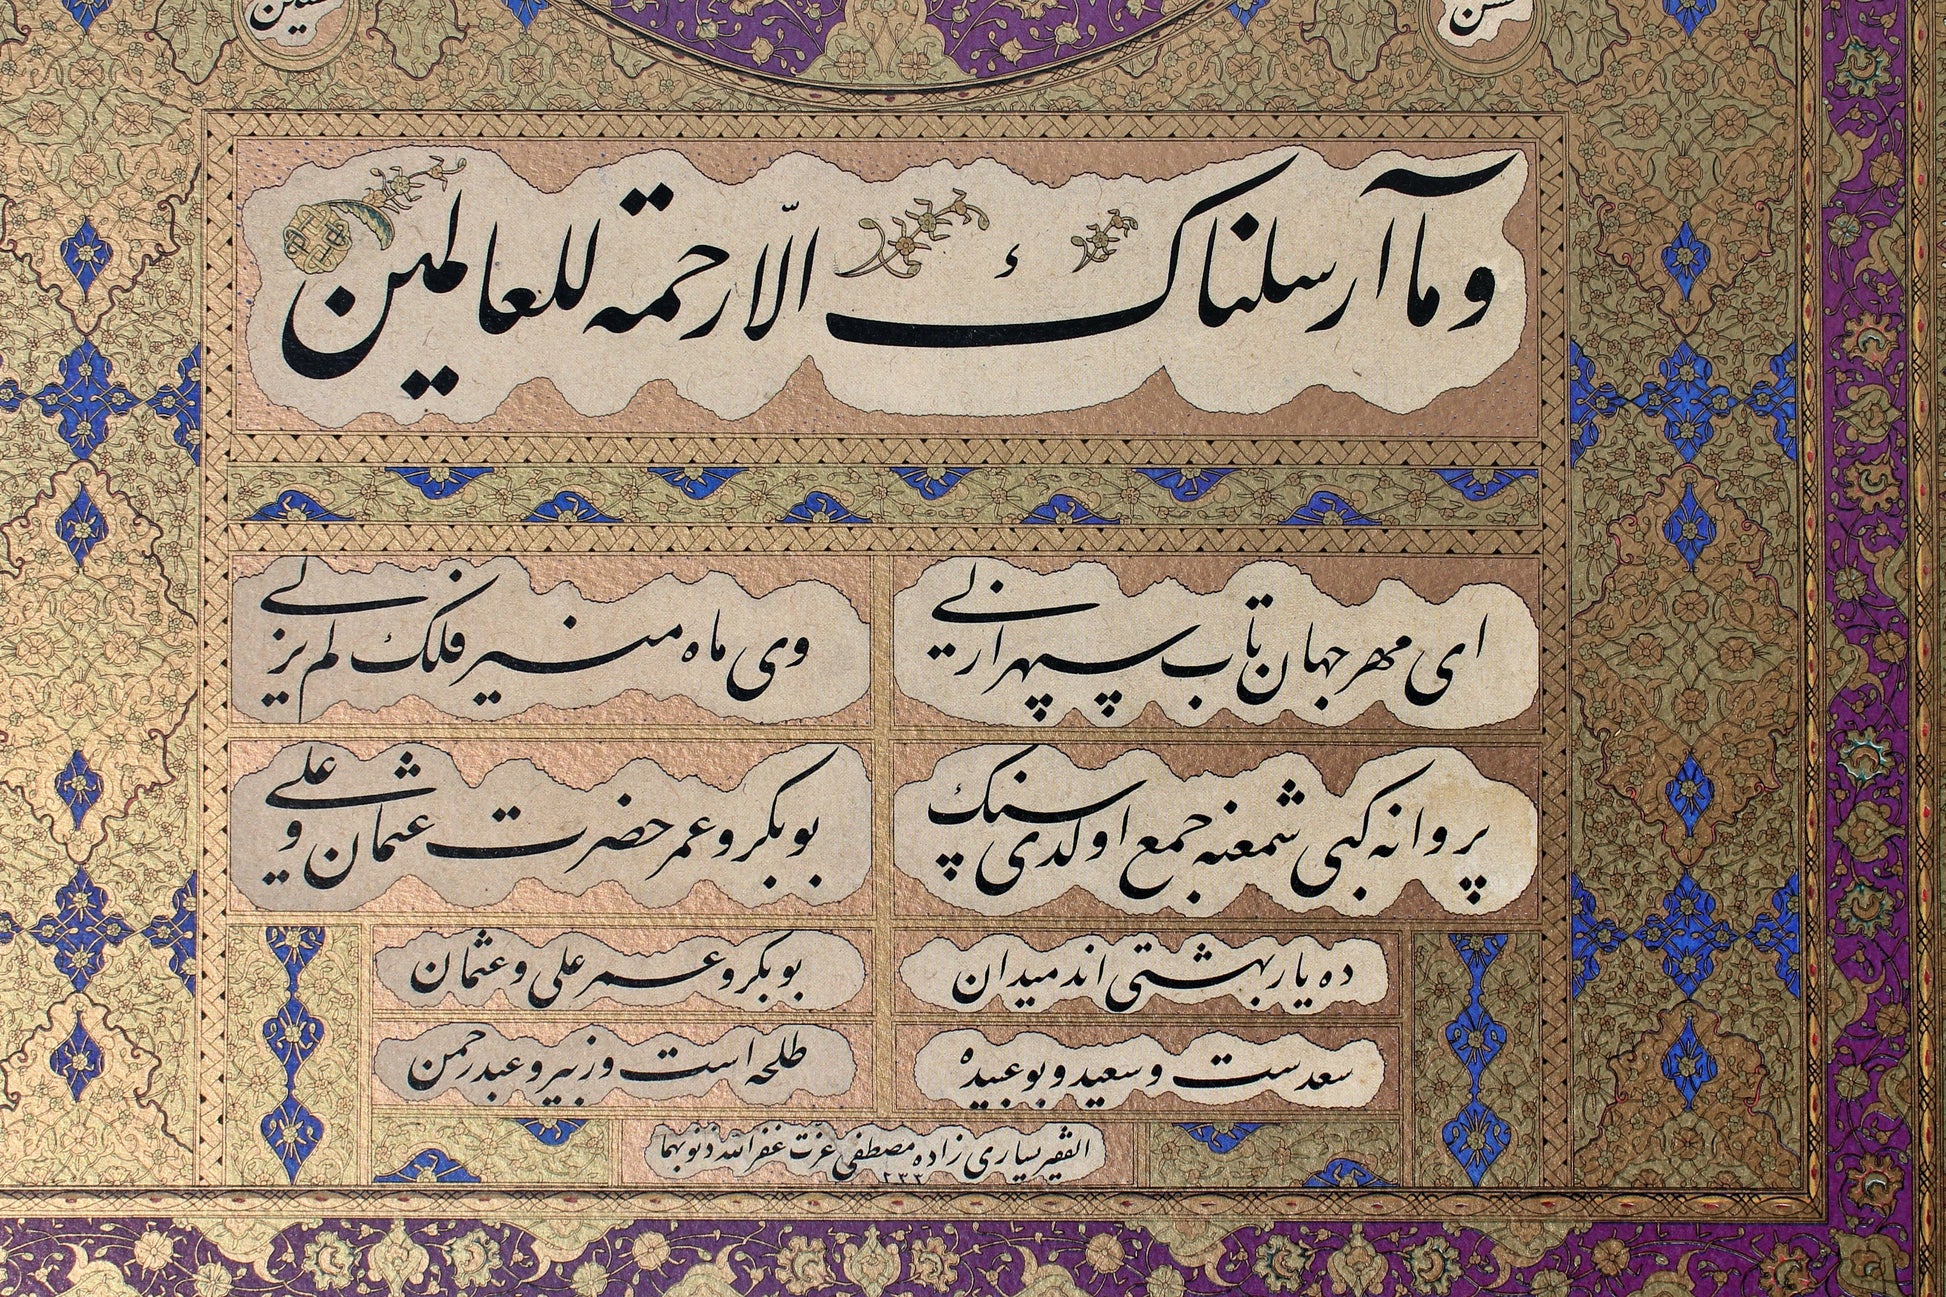 حسن
حسین
وما آرسلناك الّا رحمة للعالمین
ای مهر جهان تاب سپهر ازلی
وی ماه منیر فلك لم یزلی
پروانه کبی شمعنه جمع اولدی سنك
بوبکر و عمر حضرت عثمان و علی
ده یار بهشتی اند میدان
بوبکر و عمر علی و عثمان
سعدست و سعید و بوعبیده
طلحه است و زبیر و عبدرحمن
الفقیر یساری زاده مصطفی عزت غفر الله ذنوبهما